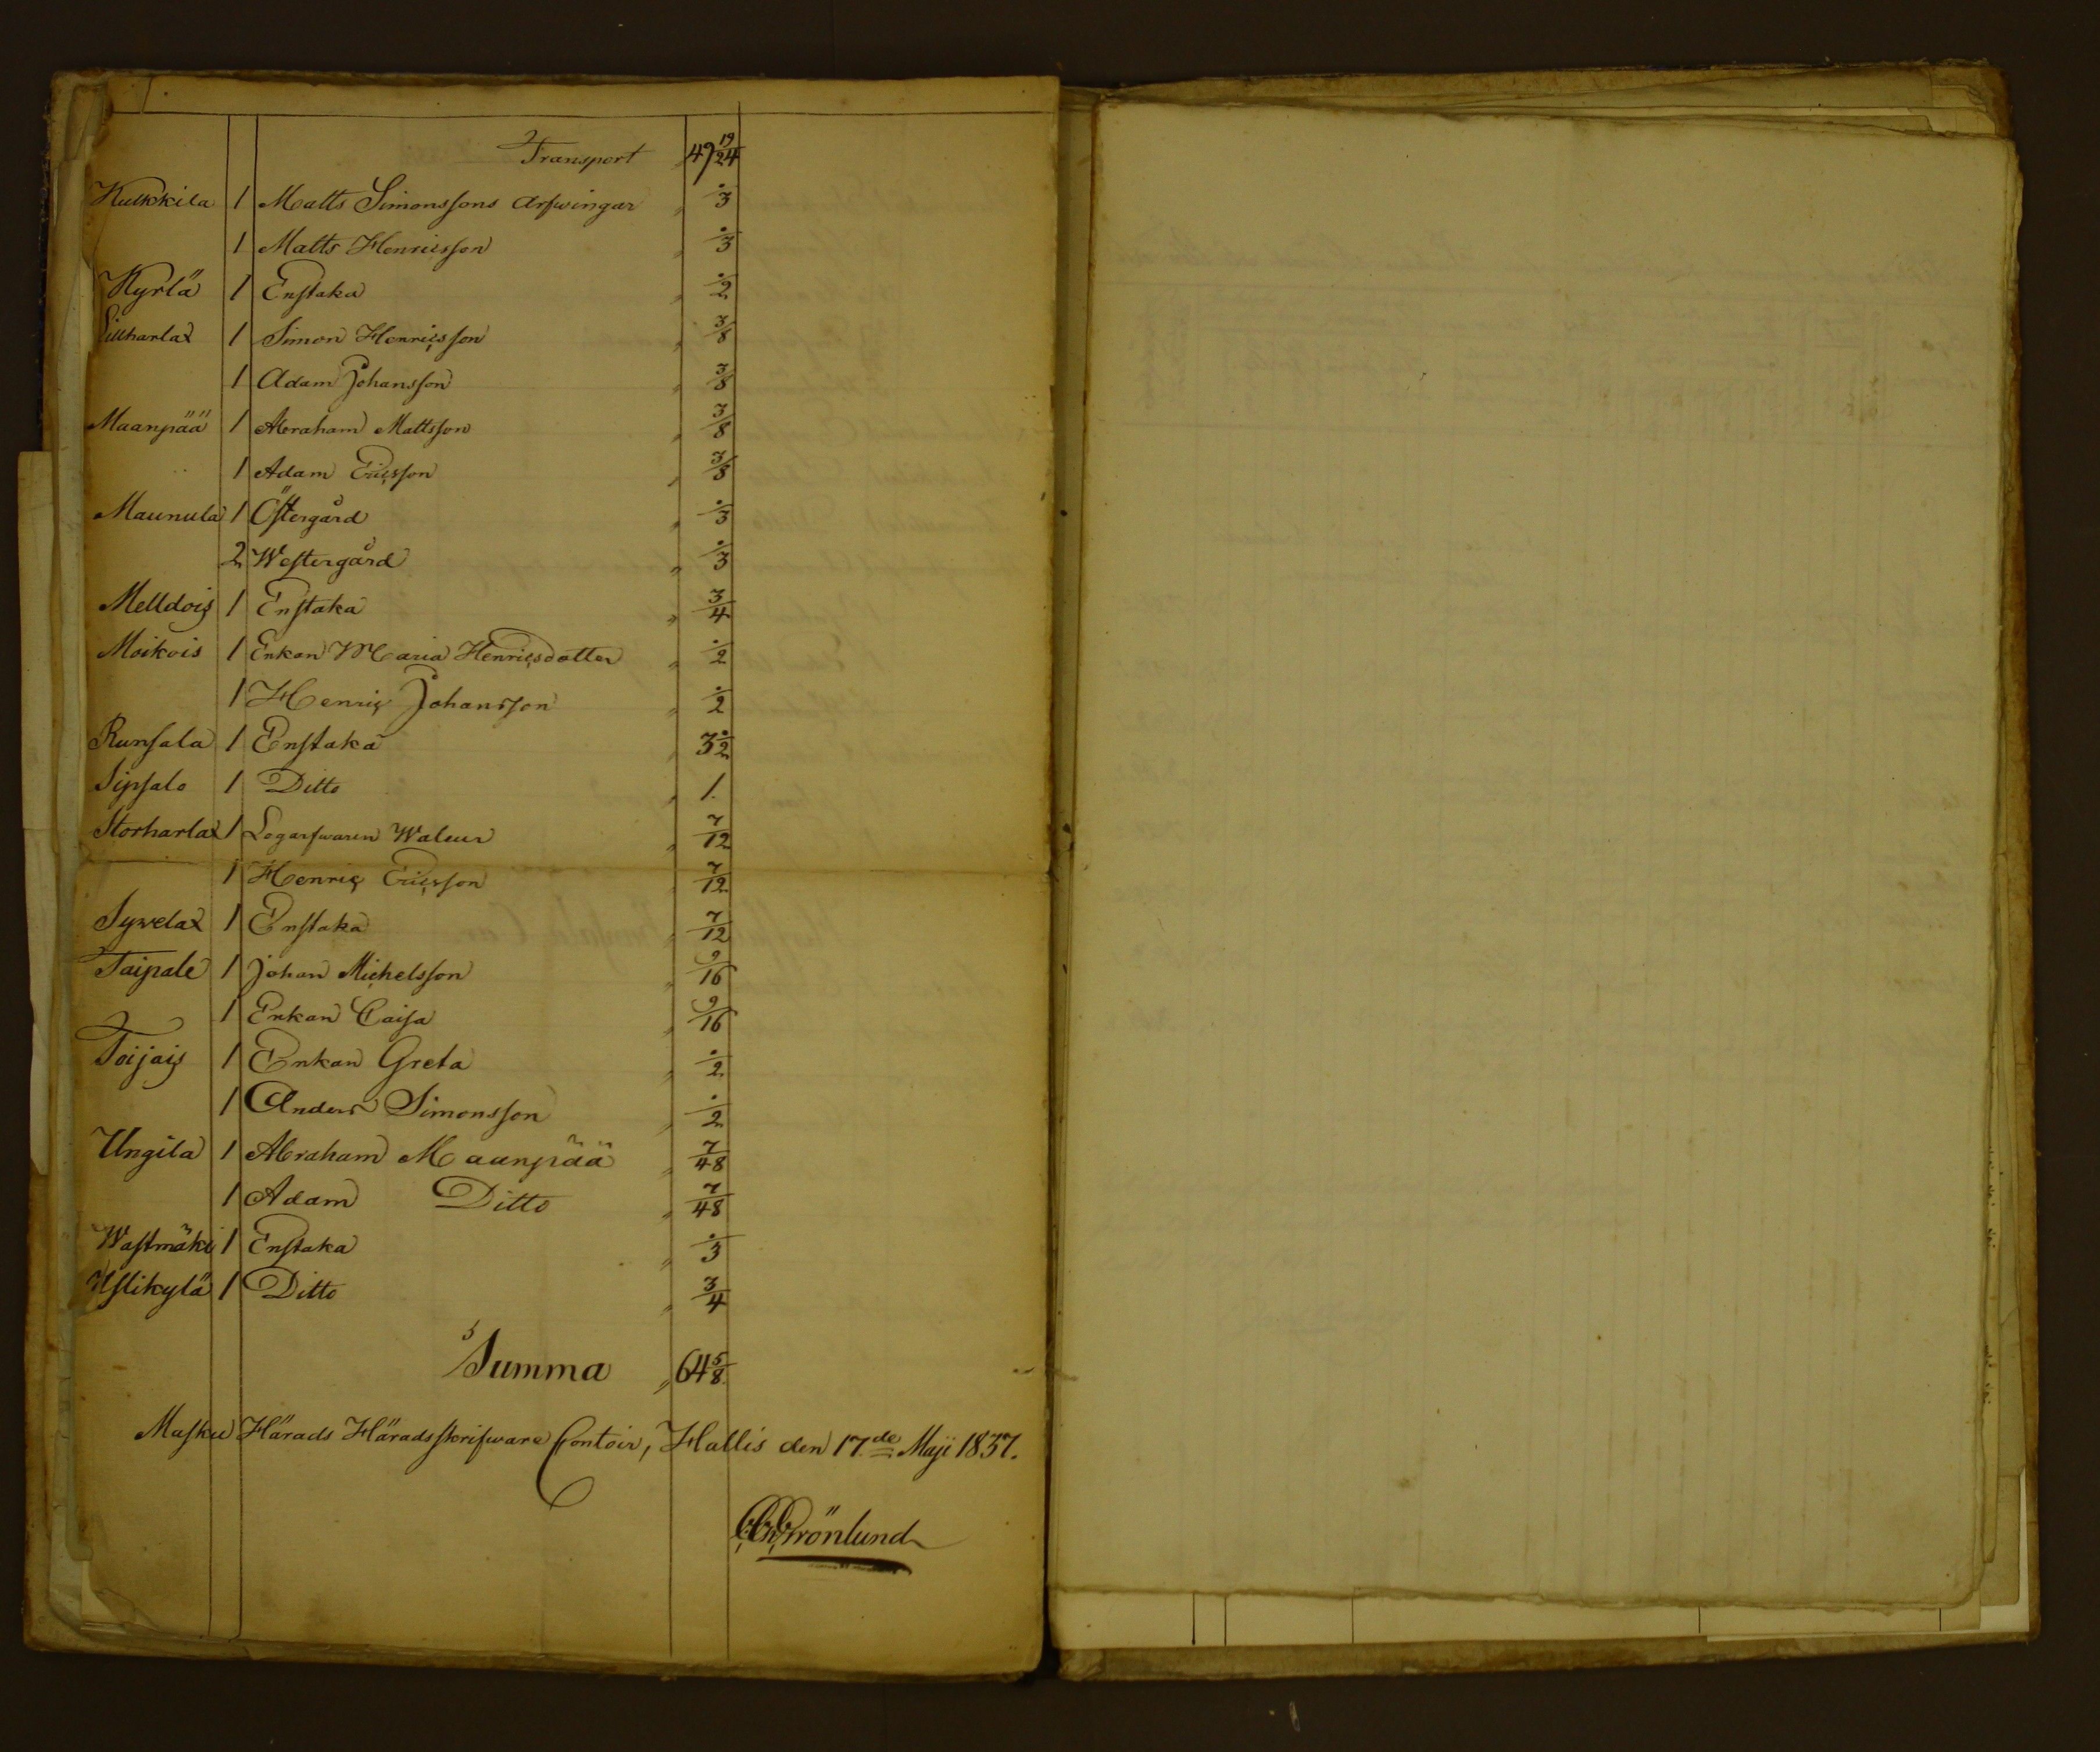 Transport " 49 19/24
Kulkkila 1 Matts Simonssons Arfwingar " ./3
1 Matts Henricsson " ./3
Kyrlä 1 Enstaka " ./2
Lillharlax 1 Simon Henricsson " 3/8
1 Adam Johansson " 3/8
Maanpää 1 Abraham Mattsson " 3/8
1 Adam Ericsson " 3/8
Maunula 1 Östergård " ./3
2 Westergård " ./3
Melldois 1 Enstaka " 3/4
Moikois 1 Enkan Maria Henricsdotter " ./2
1 Henric Johansson " ./2
Runsala 1 Enstaka " 3 ./2
Sipsalo 1 Ditto " 1.
Storharlax 1 Lagarfwaren Waleur " 7/12
1 Henric Ericsson " 7/12
Sywelax 1 Enstaka " 7/12
Taipale 1 Johan Michelsson " 9/16
1 Enkan Caisa " 9/16
Toijais 1 Enkan Greta " ./2
1 Anders Simonsson " ./2
Ungila 1 Abraham Maanpää " 7/48
1 Adam Ditto " 7/48
Wastmäki 1 Enstaka " ./3
Yslikylä 1 Ditto " 3/4
Summa " 64 5/8
Masku Härads Häradsskrifware Contoir, Hallis den 17de Maji 1837.
Grönlund